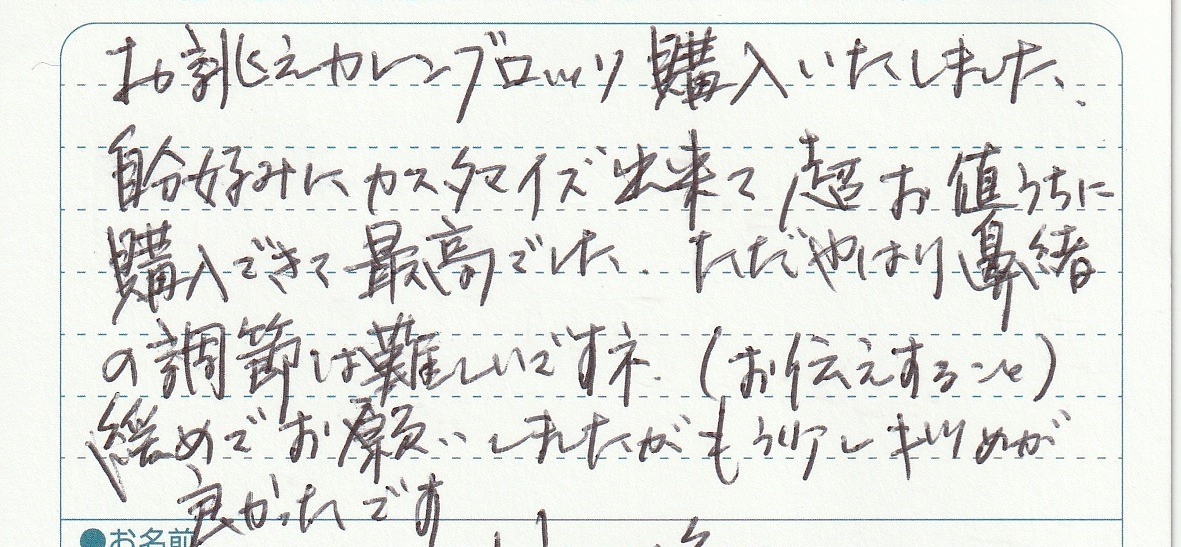 お誂えカレンブロッソ購入いたしました、
自分好みにカスタマイズ出来て超お値うちに
購入できて最高でした。ただやはり鼻緒
の調節は難しいですネ。(お伝えすること)
緩めでお願いしましたがもう少しキツめが
良かったです
●お名前